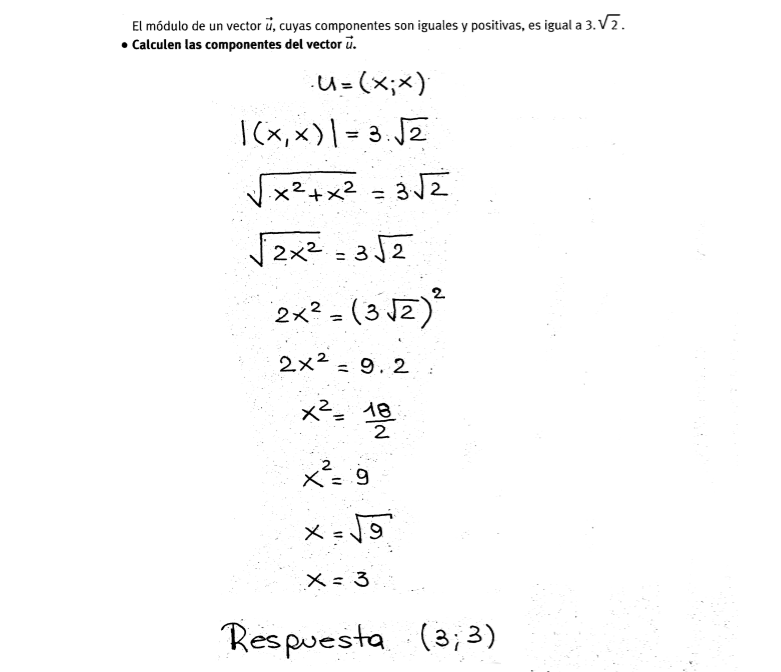 El módulo de un vector u⃗, cuyas componentes son iguales y positivas, es igual a 3.√2.
• Calculen las componentes del vector u⃗.
u = (x;x)
|(x,x)| = 3.√2
√(x²+x²) = 3√2
√(2x²) = 3√2
2x² = (3√2)²
2x² = 9.2
x² = 18/2
x² = 9
x = √9
x = 3
Respuesta (3;3)